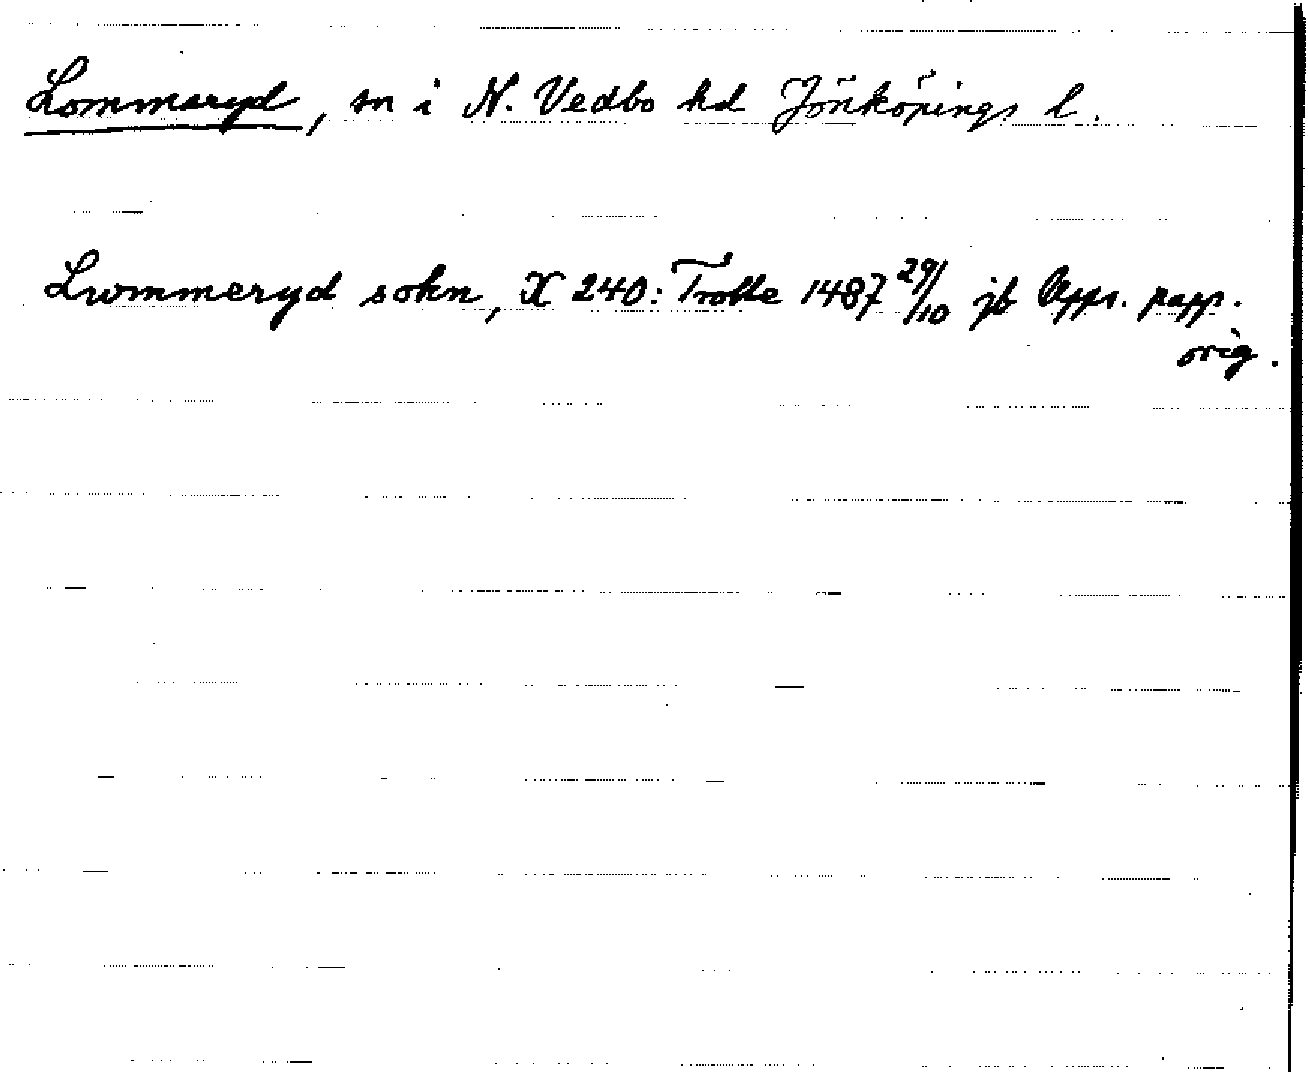 Lommaryd, sn i N. Vedbo hd Jönköpings l.
Lwmmeryd sokn, X 240: Trolle 1487 29/10 jb Upps. papp.
orig.